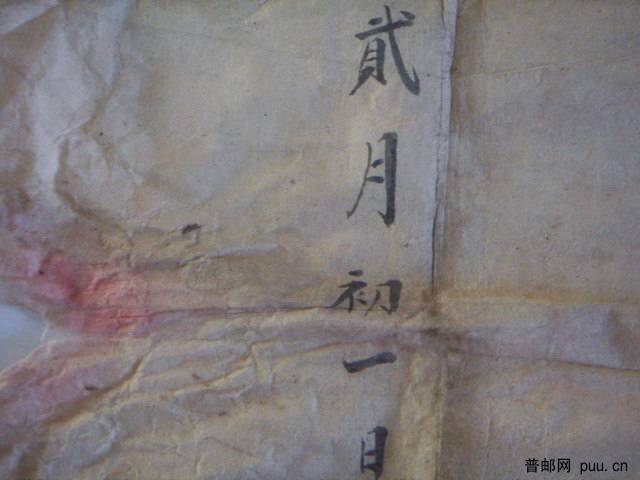 貳月初一日
普邮网 puu.cn